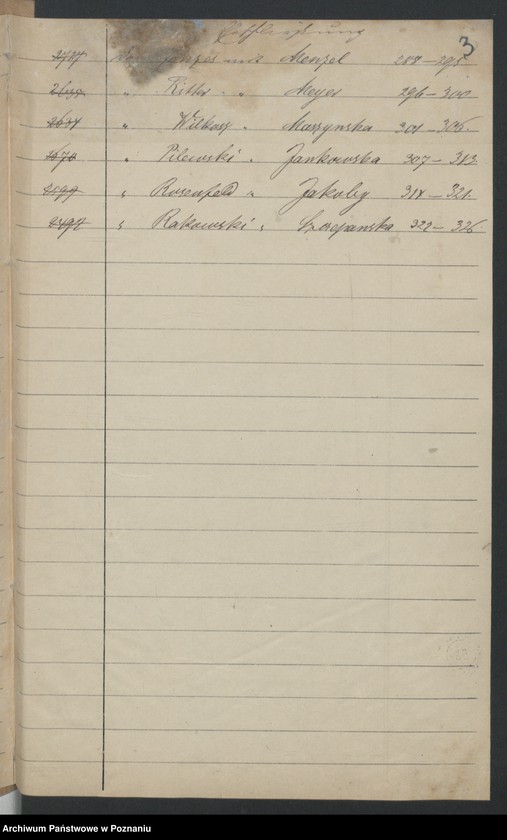 3
2727 mit Menzel 288-295
" Ritter " " Meyer 296-300
" Wilkosz " Maszynska 301-306.
1670 " Pilewski " Jankowska 307-313
" Rosenfeld " Jakoby 314-321.
" Rakowski " Szczepanska 322-326.
Archiwum Państwowe w Poznaniu